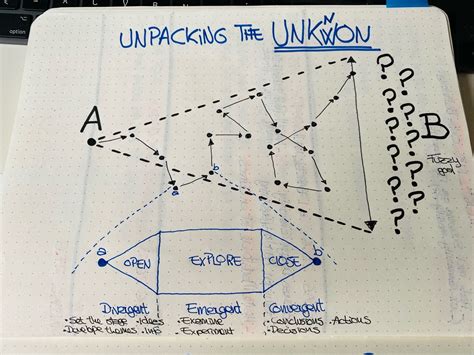 UNPACKING THE UNKNWON
N
A
B
Fuzzy
goal
? ? ? ? ? ? ? ? ? ? ? ?
a
b
a
OPEN
EXPLORE
CLOSE
b
Divergent
• Set the stage • Ideas
• Develope themes • Info
Emergent
• Examine
• Experiment
Convergent
• Conclusions • Actions
• Decisions